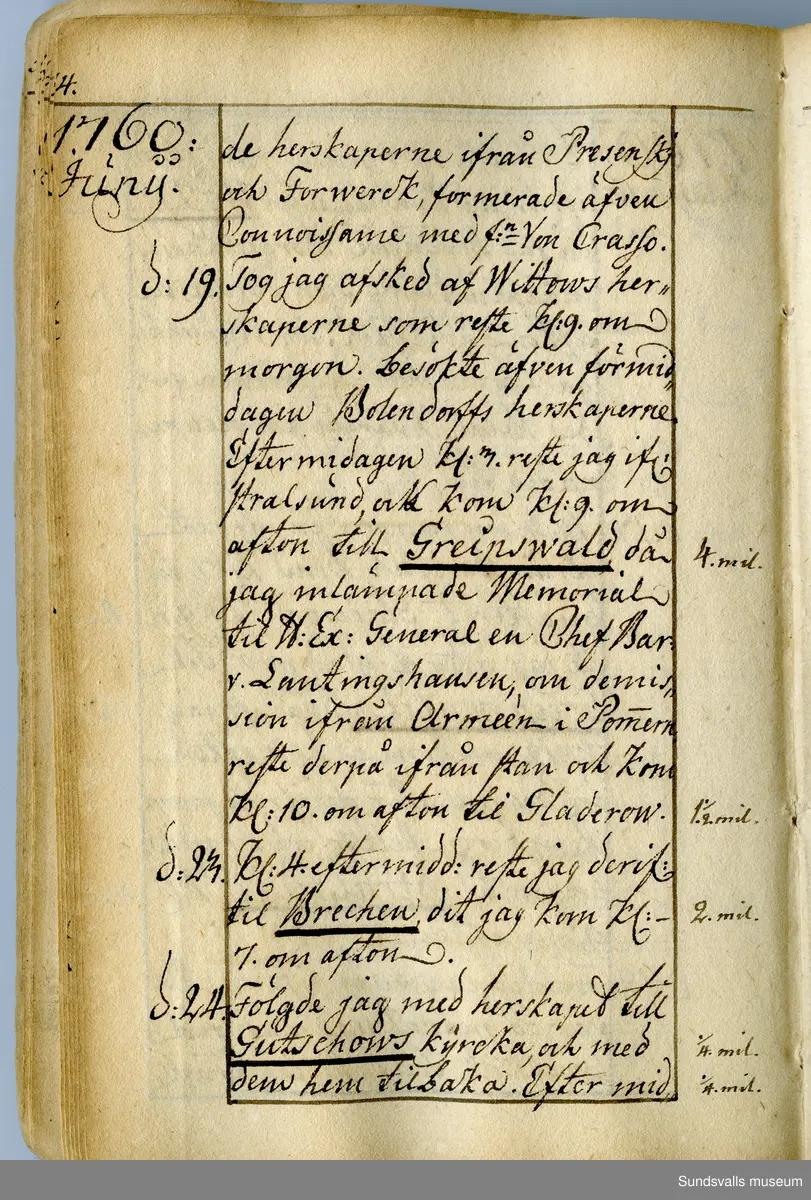 4.
1760:
Junÿ.
de herskaperne ifrån Presensk;
och Forwerck, formerade äfven
Connoissame med f:n Von Crasso.
d: 19. Tog jag afsked af Wittows her„
skaperne som reste Kl: 9. om
morgon. Besökte äfven förmid„
dagen Bolendorffs herskaperne
Eftermidagen Kl: 3. reste jag if:
Stralsund, och kom Kl: 9. om
afton till Greipswald, då 4. mil.
jag inlämpade Memorial
til H: Ex: General en Chef Bar:
v. Lantingshausen, om demis„
sion ifrån Armeén i Pom̅ern
reste derpå ifrån stan och kom
Kl: 10. om afton til Gladerow. 1 1/2. mil.
d: 23. Kl: 4. eftermidd: reste jag derif:
til Brechen, dit jag kom Kl: – 2. mil.
7. om afton.
d: 24. Fölgde jag med herskapet till
Gutschows kÿrcka, och med 1/4. mil.
dem hem tilbaka. Efter mid 1/4. mil.
Sundsvalls museum